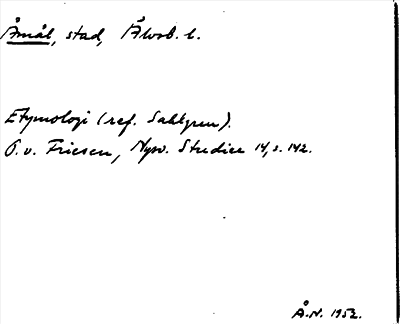 Åmål, stad, Älvsb. l.
Etymologi (ref. Sahlgren).
O. v. Friesen, Nysv. Studier 14, s. 142.
Å.N. 1952.